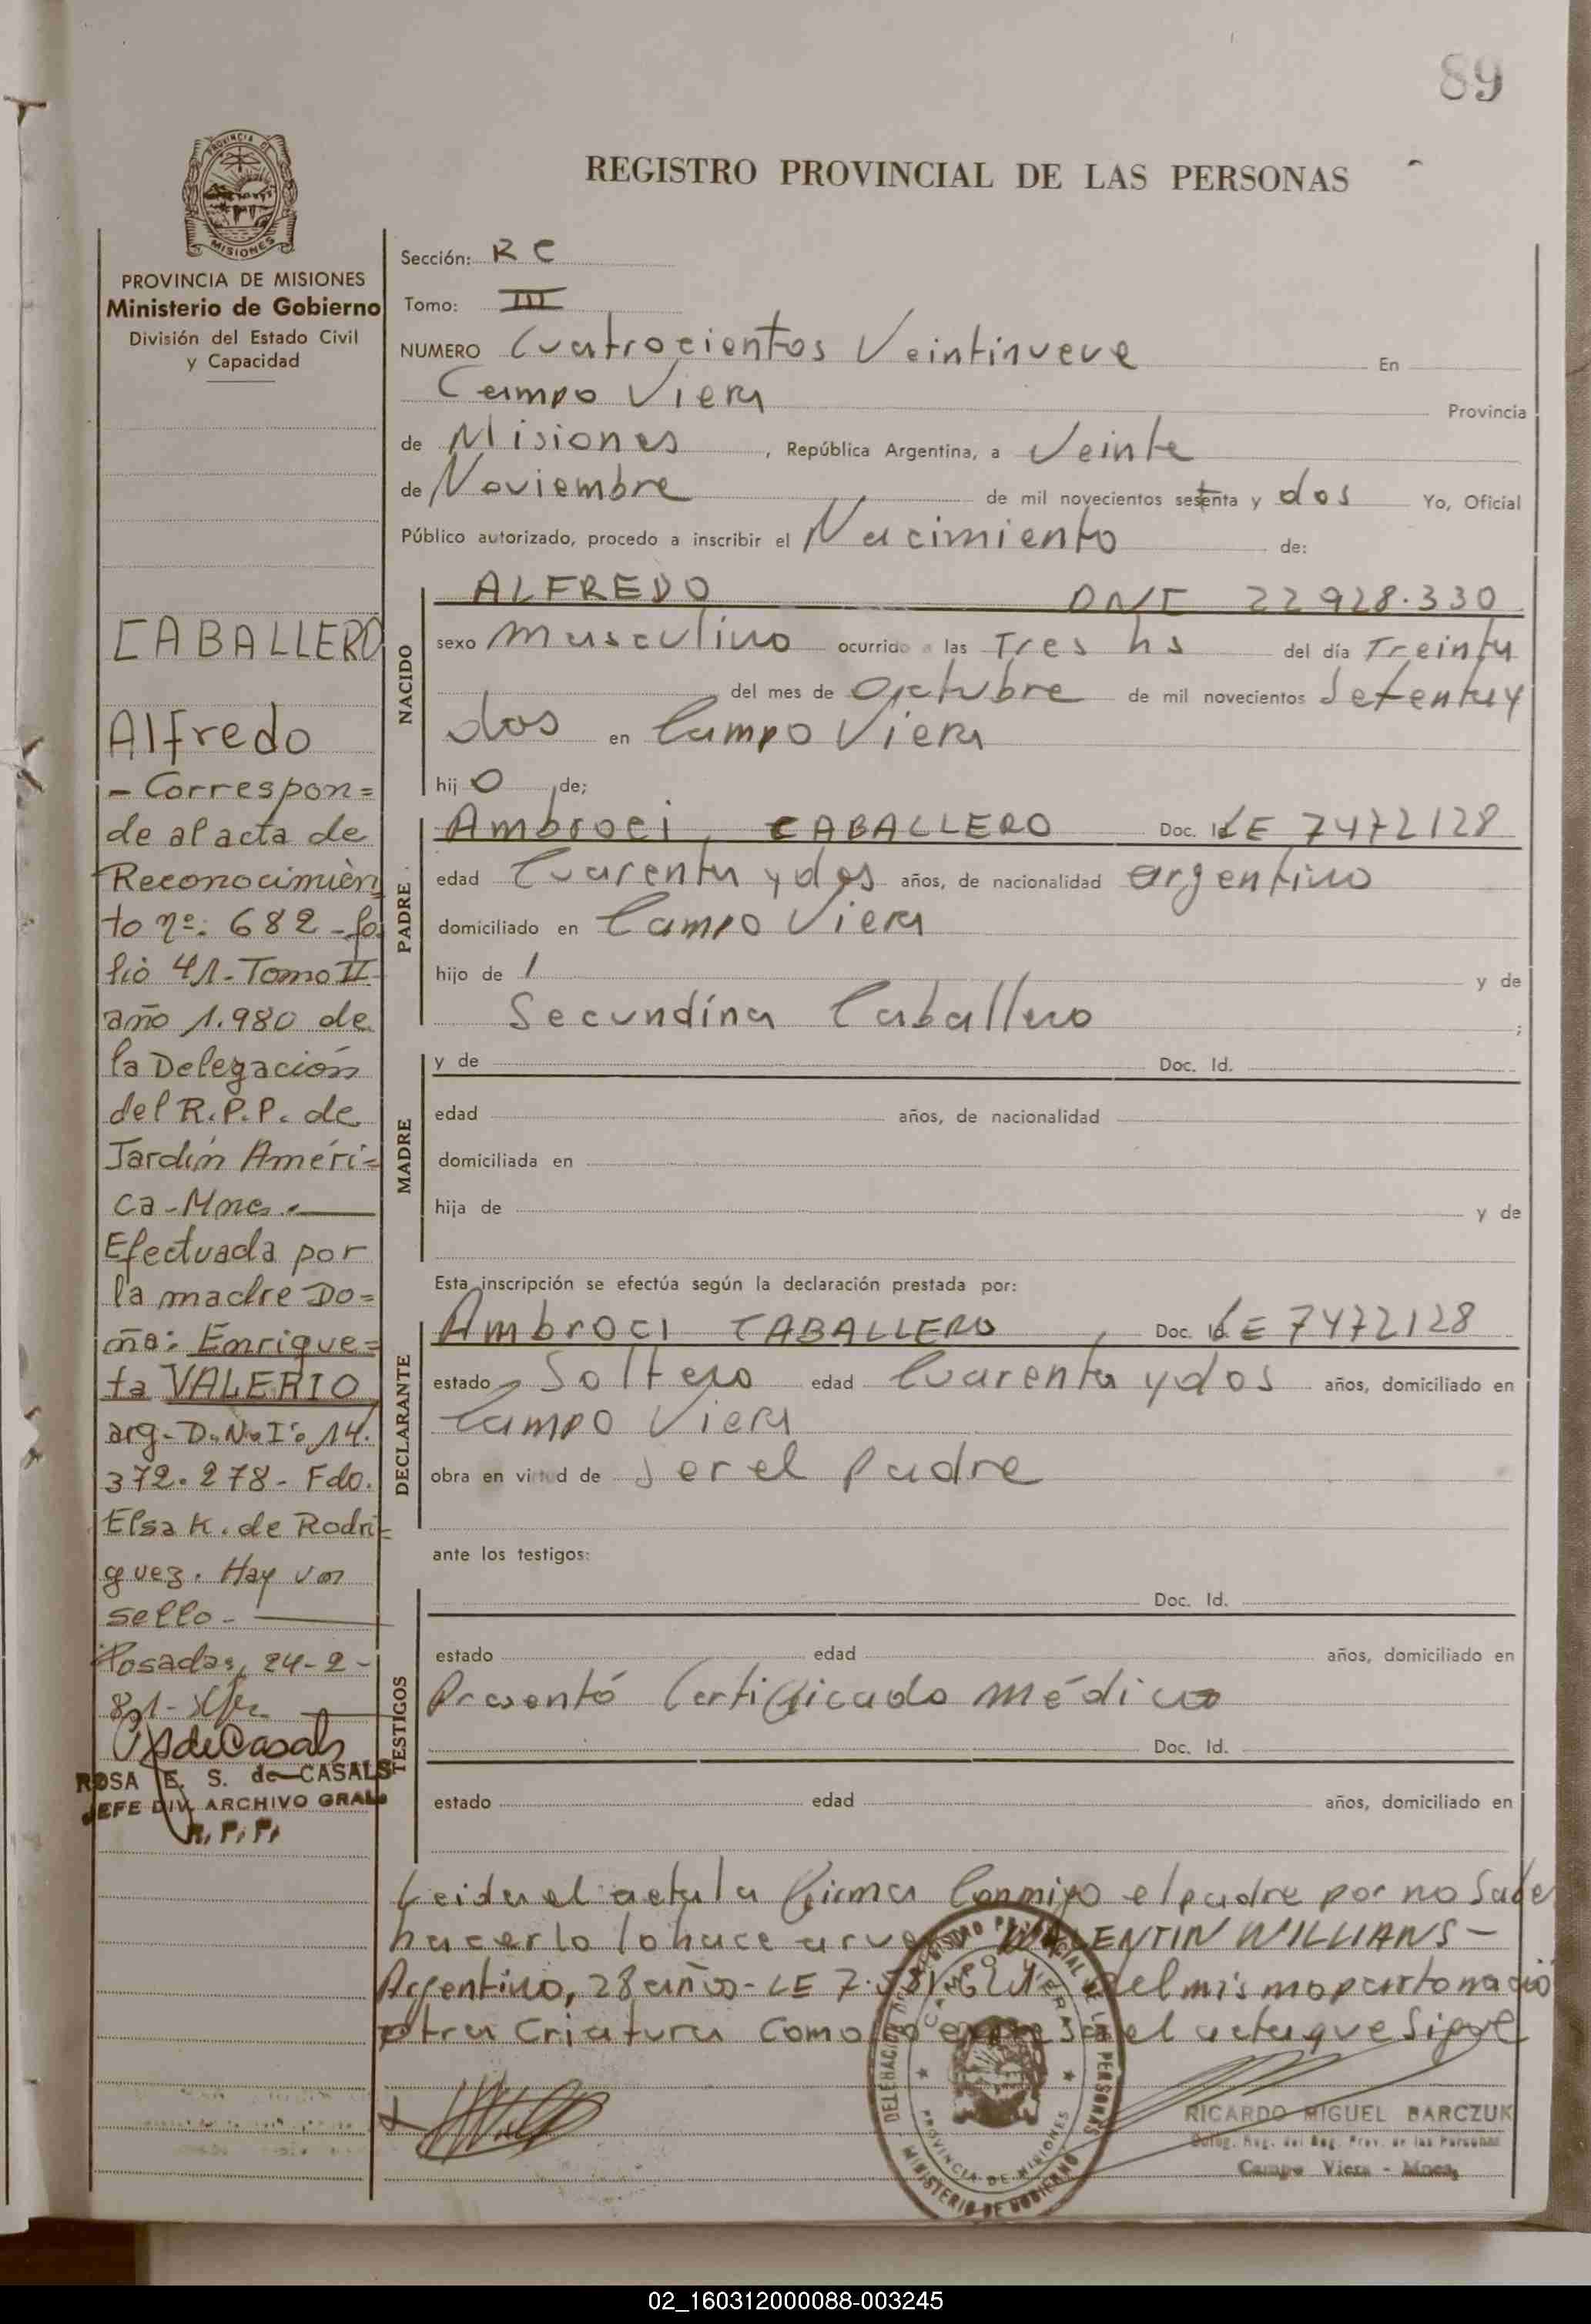 89
REGISTRO PROVINCIAL DE LAS PERSONAS
PROVINCIA DE
MISIONES
PROVINCIA DE MISIONES
Ministerio de Gobierno
División del Estado Civil
y Capacidad
CABALLERO
Alfredo
- Correspon=
de al acta de
Reconocimien
to nº: 682 - fo
lio 41 - Tomo II
año 1.980 de
la Delegación
del R.P.P. de
Jardín Améri=
ca - Mnes. -
Efectuada por
la madre Do=
ña: Enrique=
ta VALERIO
arg - D.N.I: 14.
372.278 - Fdo.
Elsa K. de Rodri=
guez. Hay un
sello -
Posadas, 24-2-
81-
ROSA E. S. de CASALS
JEFE DIV. ARCHIVO GRAL.
R.P.P.
Sección: RC
Tomo: III
NUMERO Cuatrocientos Veintinueve En
Campo Viera Provincia
de Misiones, República Argentina, a Veinte
de Noviembre de mil novecientos setenta y dos Yo, Oficial
Público autorizado, procedo a inscribir el Nacimiento de:
NACIDO
ALFREDO DNI 22928.330
sexo masculino ocurrido a las Tres hs del día Treinta
del mes de Octubre de mil novecientos setenta y
dos en Campo Viera
hijo de;
PADRE
Ambroci, CABALLERO Doc. LE 7472128
edad Cuarenta y dos años, de nacionalidad argentino
domiciliado en Campo Viera
hijo de / y de
Secundina Caballero ;
MADRE
y de Doc. Id.
edad años, de nacionalidad
domiciliada en
hija de y de
Esta inscripción se efectúa según la declaración prestada por:
DECLARANTE
Ambroci CABALLERO, Doc. LE 7472128
estado Soltero edad Cuarenta y dos años, domiciliado en
Campo Viera
obra en virtud de ser el padre
ante los testigos:
TESTIGOS
Doc. Id.
estado edad años, domiciliado en
Presentó Certificado médico
Doc. Id.
estado edad años, domiciliado en
Leida el acta la firma conmigo el padre por no saber
hacerlo lo hace a ruego VALENTIN WILLIANS -
Argentino, 28 años - LE 7. Del mismo parto nació
otra criatura como lo expresa el acta que sigue
DELEGACION DEL REGISTRO PROVINCIAL DE LAS PERSONAS
CAMPO VIERA
PROVINCIA DE MISIONES
MINISTERIO DE GOBIERNO
RICARDO MIGUEL BARCZUK
Deleg. Reg. del Reg. Prov. de las Personas
Campo Viera - Mnes.
02_160312000088-003245